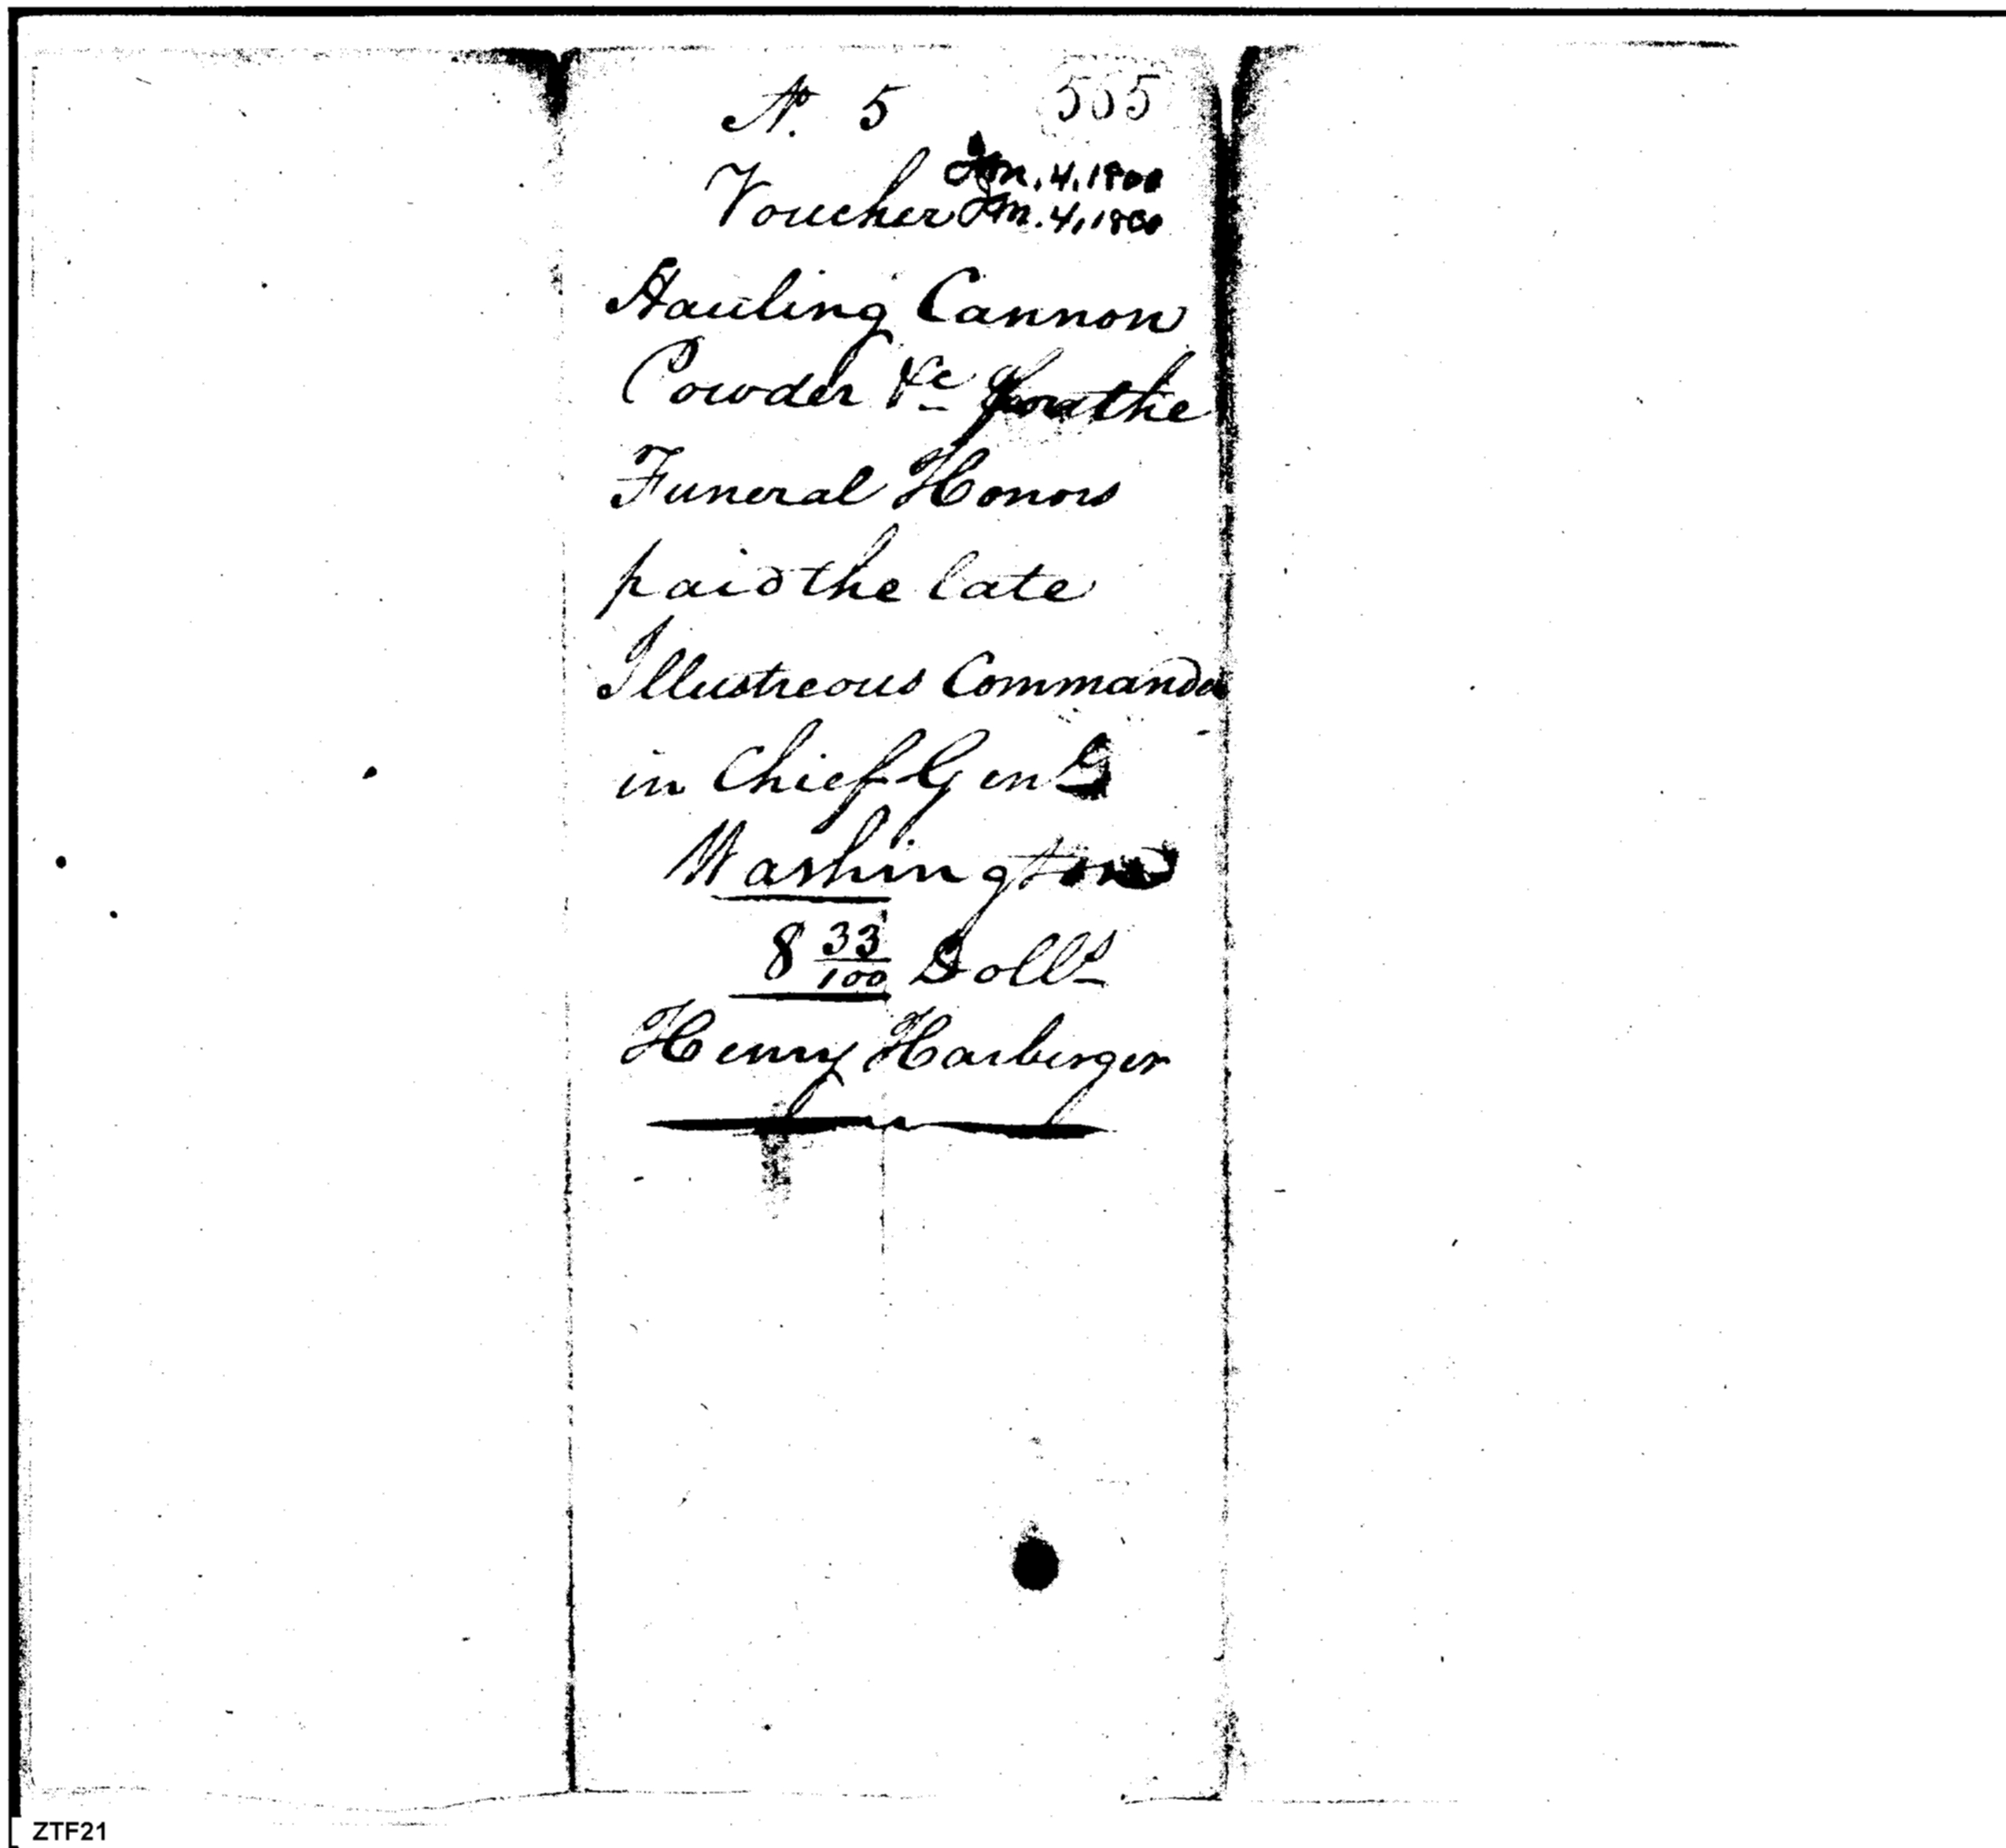 No. 5 505
Jan. 4, 1800
Voucher Jan. 4, 1800
Hauling Cannon
Powder &c for the
Funeral Honors
paid the late
Illustreous Commander
in Chief Genl G
Washington
8 33/100 Dolls
Henry Harberger
ZTF21